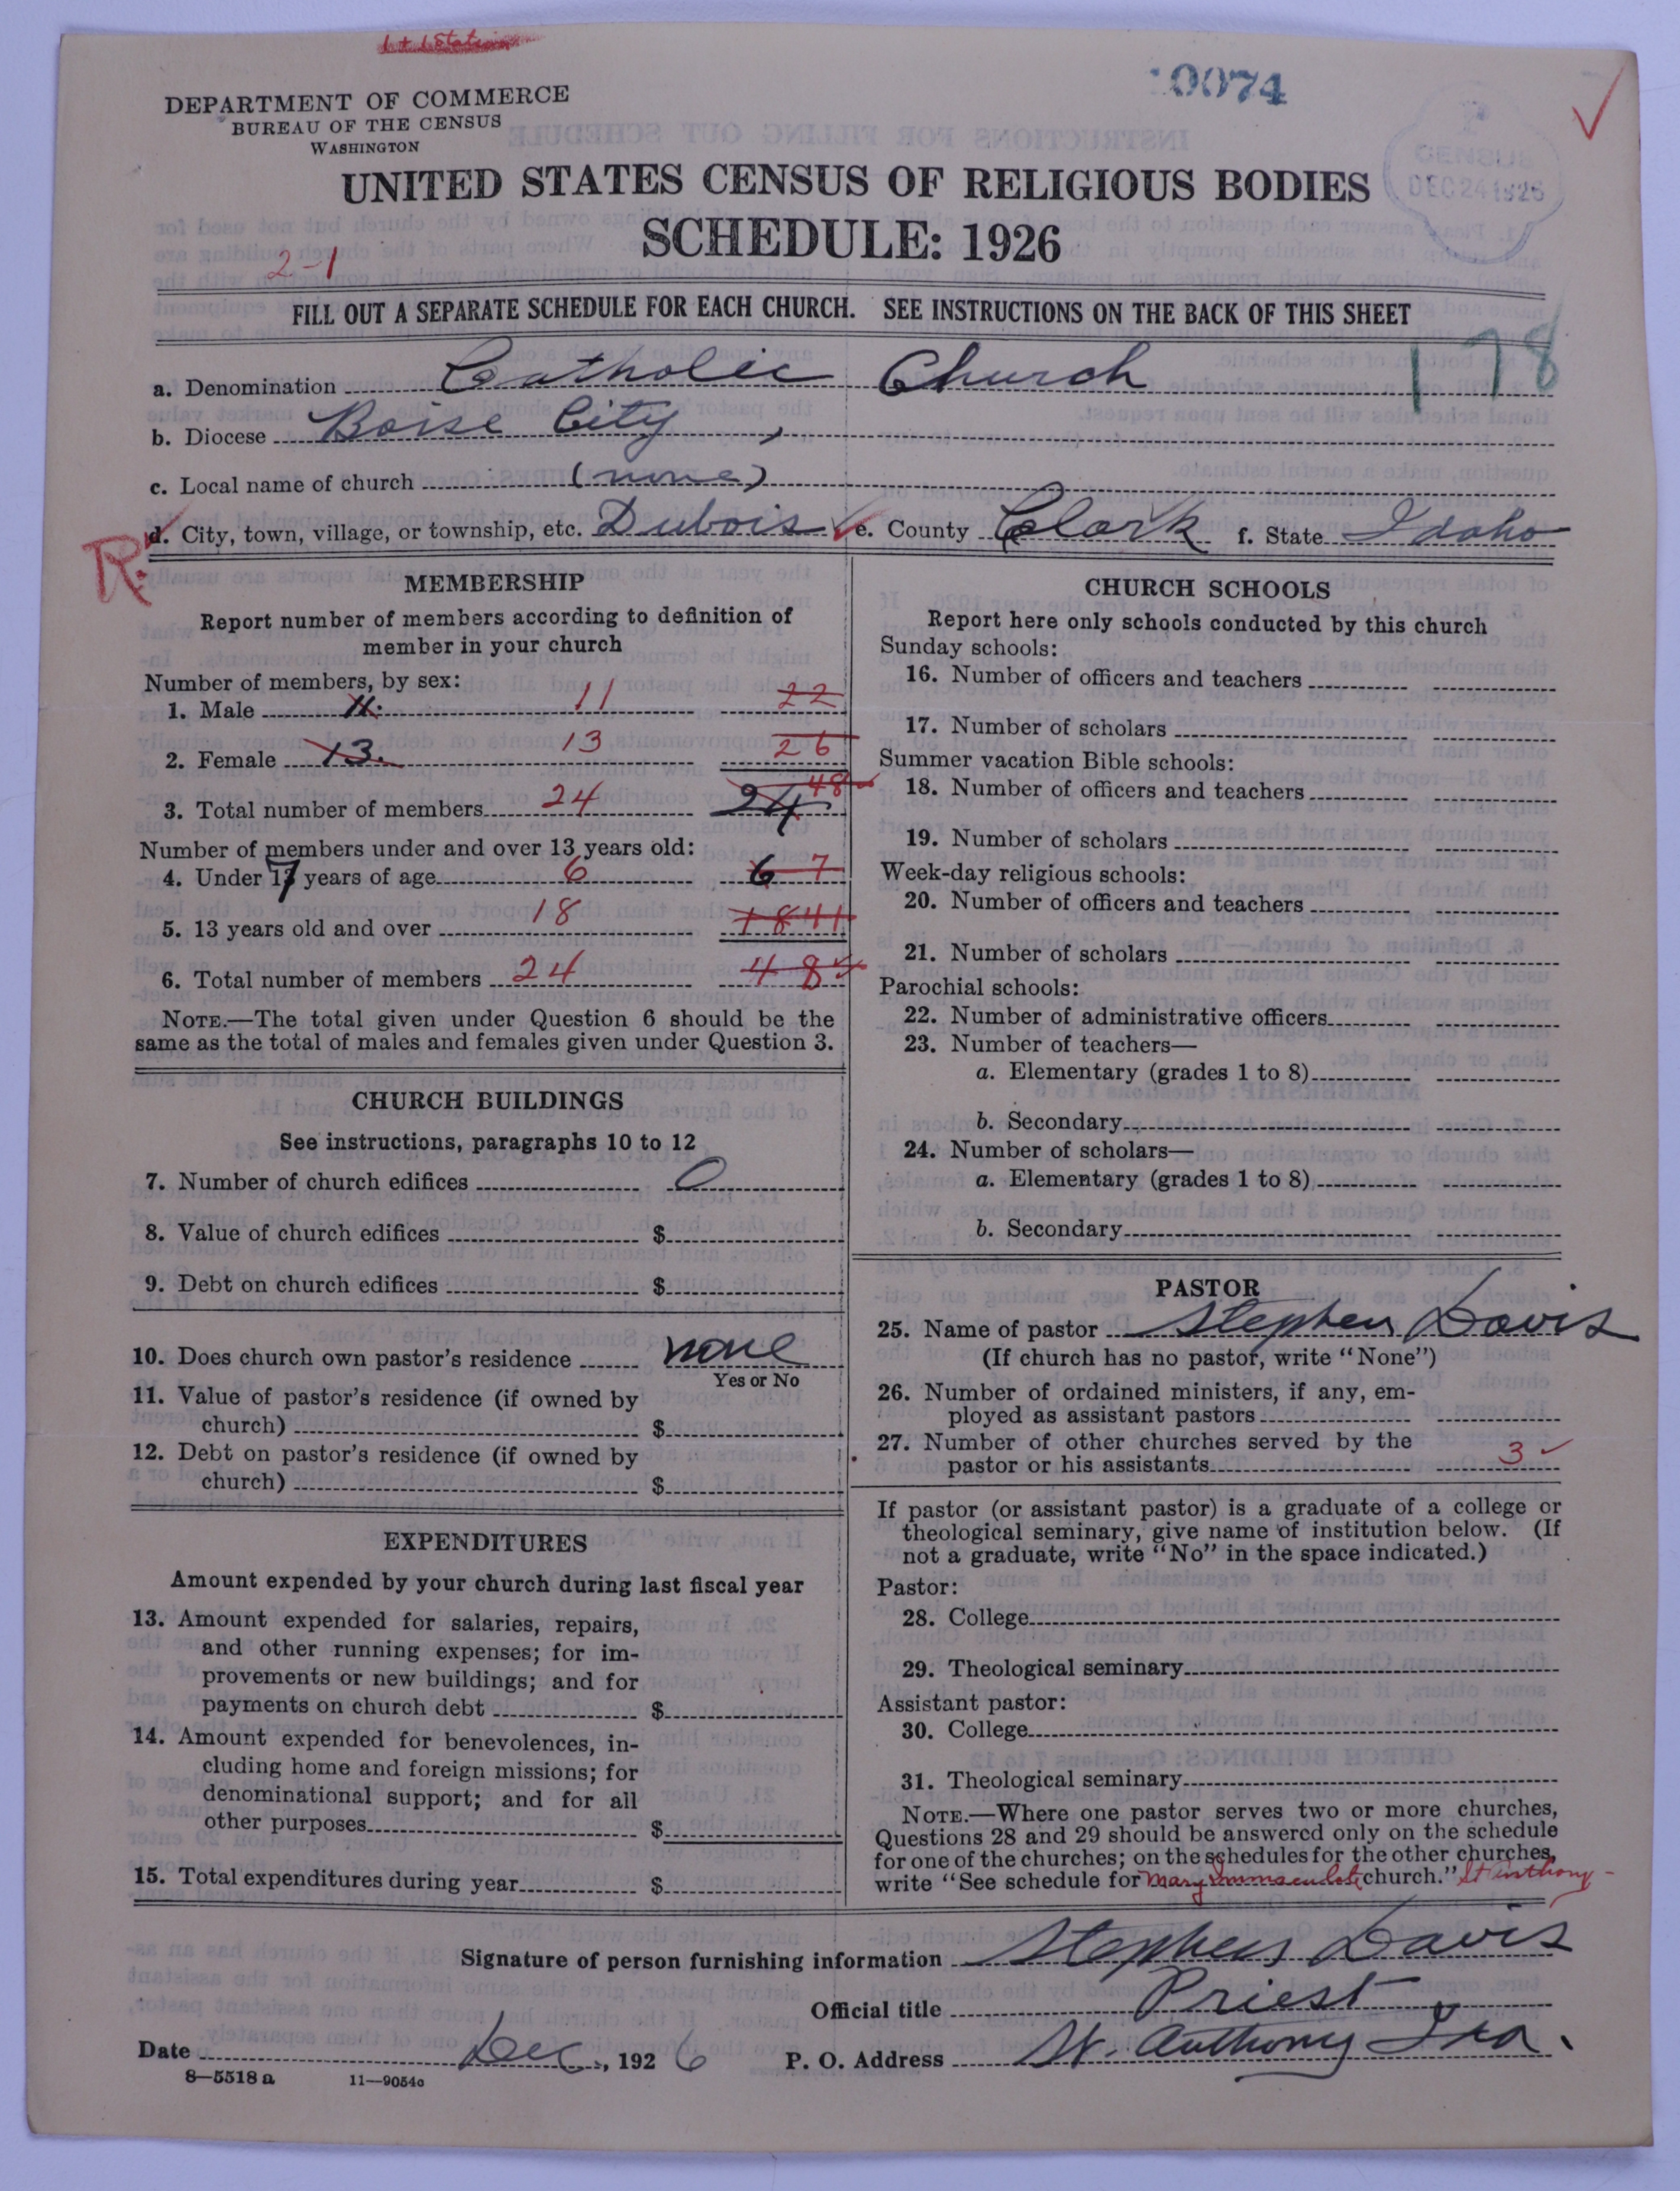 1 + 1 Station
DEPARTMENT OF COMMERCE
BUREAU OF THE CENSUS
WASHINGTON
0074
CENSUS
DEC 24 1926
UNITED STATES CENSUS OF RELIGIOUS BODIES
SCHEDULE: 1926
2-1
FILL OUT A SEPARATE SCHEDULE FOR EACH CHURCH. SEE INSTRUCTIONS ON THE BACK OF THIS SHEET
178
a. Denomination Catholic Church
b. Diocese Boise City,
c. Local name of church (none)
d. City, town, village, or township, etc. Dubois e. County Clark f. State Idaho
R.
MEMBERSHIP
Report number of members according to definition of
member in your church
Number of members, by sex:
1. Male 11. 11 22
2. Female 13. 13 26
3. Total number of members 24 24 48
Number of members under and over 13 years old:
4. Under 17 years of age 6 6 7
5. 13 years old and over 18 18 41
6. Total number of members 24 48
NOTE.—The total given under Question 6 should be the
same as the total of males and females given under Question 3.
CHURCH BUILDINGS
See instructions, paragraphs 10 to 12
7. Number of church edifices 0
8. Value of church edifices $
9. Debt on church edifices $
10. Does church own pastor's residence none
Yes or No
11. Value of pastor's residence (if owned by
church) $
12. Debt on pastor's residence (if owned by
church) $
EXPENDITURES
Amount expended by your church during last fiscal year
13. Amount expended for salaries, repairs,
and other running expenses; for im-
provements or new buildings; and for
payments on church debt $
14. Amount expended for benevolences, in-
cluding home and foreign missions; for
denominational support; and for all
other purposes $
15. Total expenditures during year $
CHURCH SCHOOLS
Report here only schools conducted by this church
Sunday schools:
16. Number of officers and teachers
17. Number of scholars
Summer vacation Bible schools:
18. Number of officers and teachers
19. Number of scholars
Week-day religious schools:
20. Number of officers and teachers
21. Number of scholars
Parochial schools:
22. Number of administrative officers
23. Number of teachers—
a. Elementary (grades 1 to 8)
b. Secondary
24. Number of scholars—
a. Elementary (grades 1 to 8)
b. Secondary
PASTOR
25. Name of pastor Stephen Davis
(If church has no pastor, write "None")
26. Number of ordained ministers, if any, em-
ployed as assistant pastors
27. Number of other churches served by the
pastor or his assistants 3
If pastor (or assistant pastor) is a graduate of a college or
theological seminary, give name of institution below. (If
not a graduate, write "No" in the space indicated.)
Pastor:
28. College
29. Theological seminary
Assistant pastor:
30. College
31. Theological seminary
NOTE.—Where one pastor serves two or more churches,
Questions 28 and 29 should be answered only on the schedule
for one of the churches; on the schedules for the other churches,
write "See schedule for Mary Immaculate church." St Anthony -
Signature of person furnishing information Stephen Davis
Official title Priest
Date Dec, 1926 P. O. Address St. Anthony Ida.
8—5518 a 11—9054c